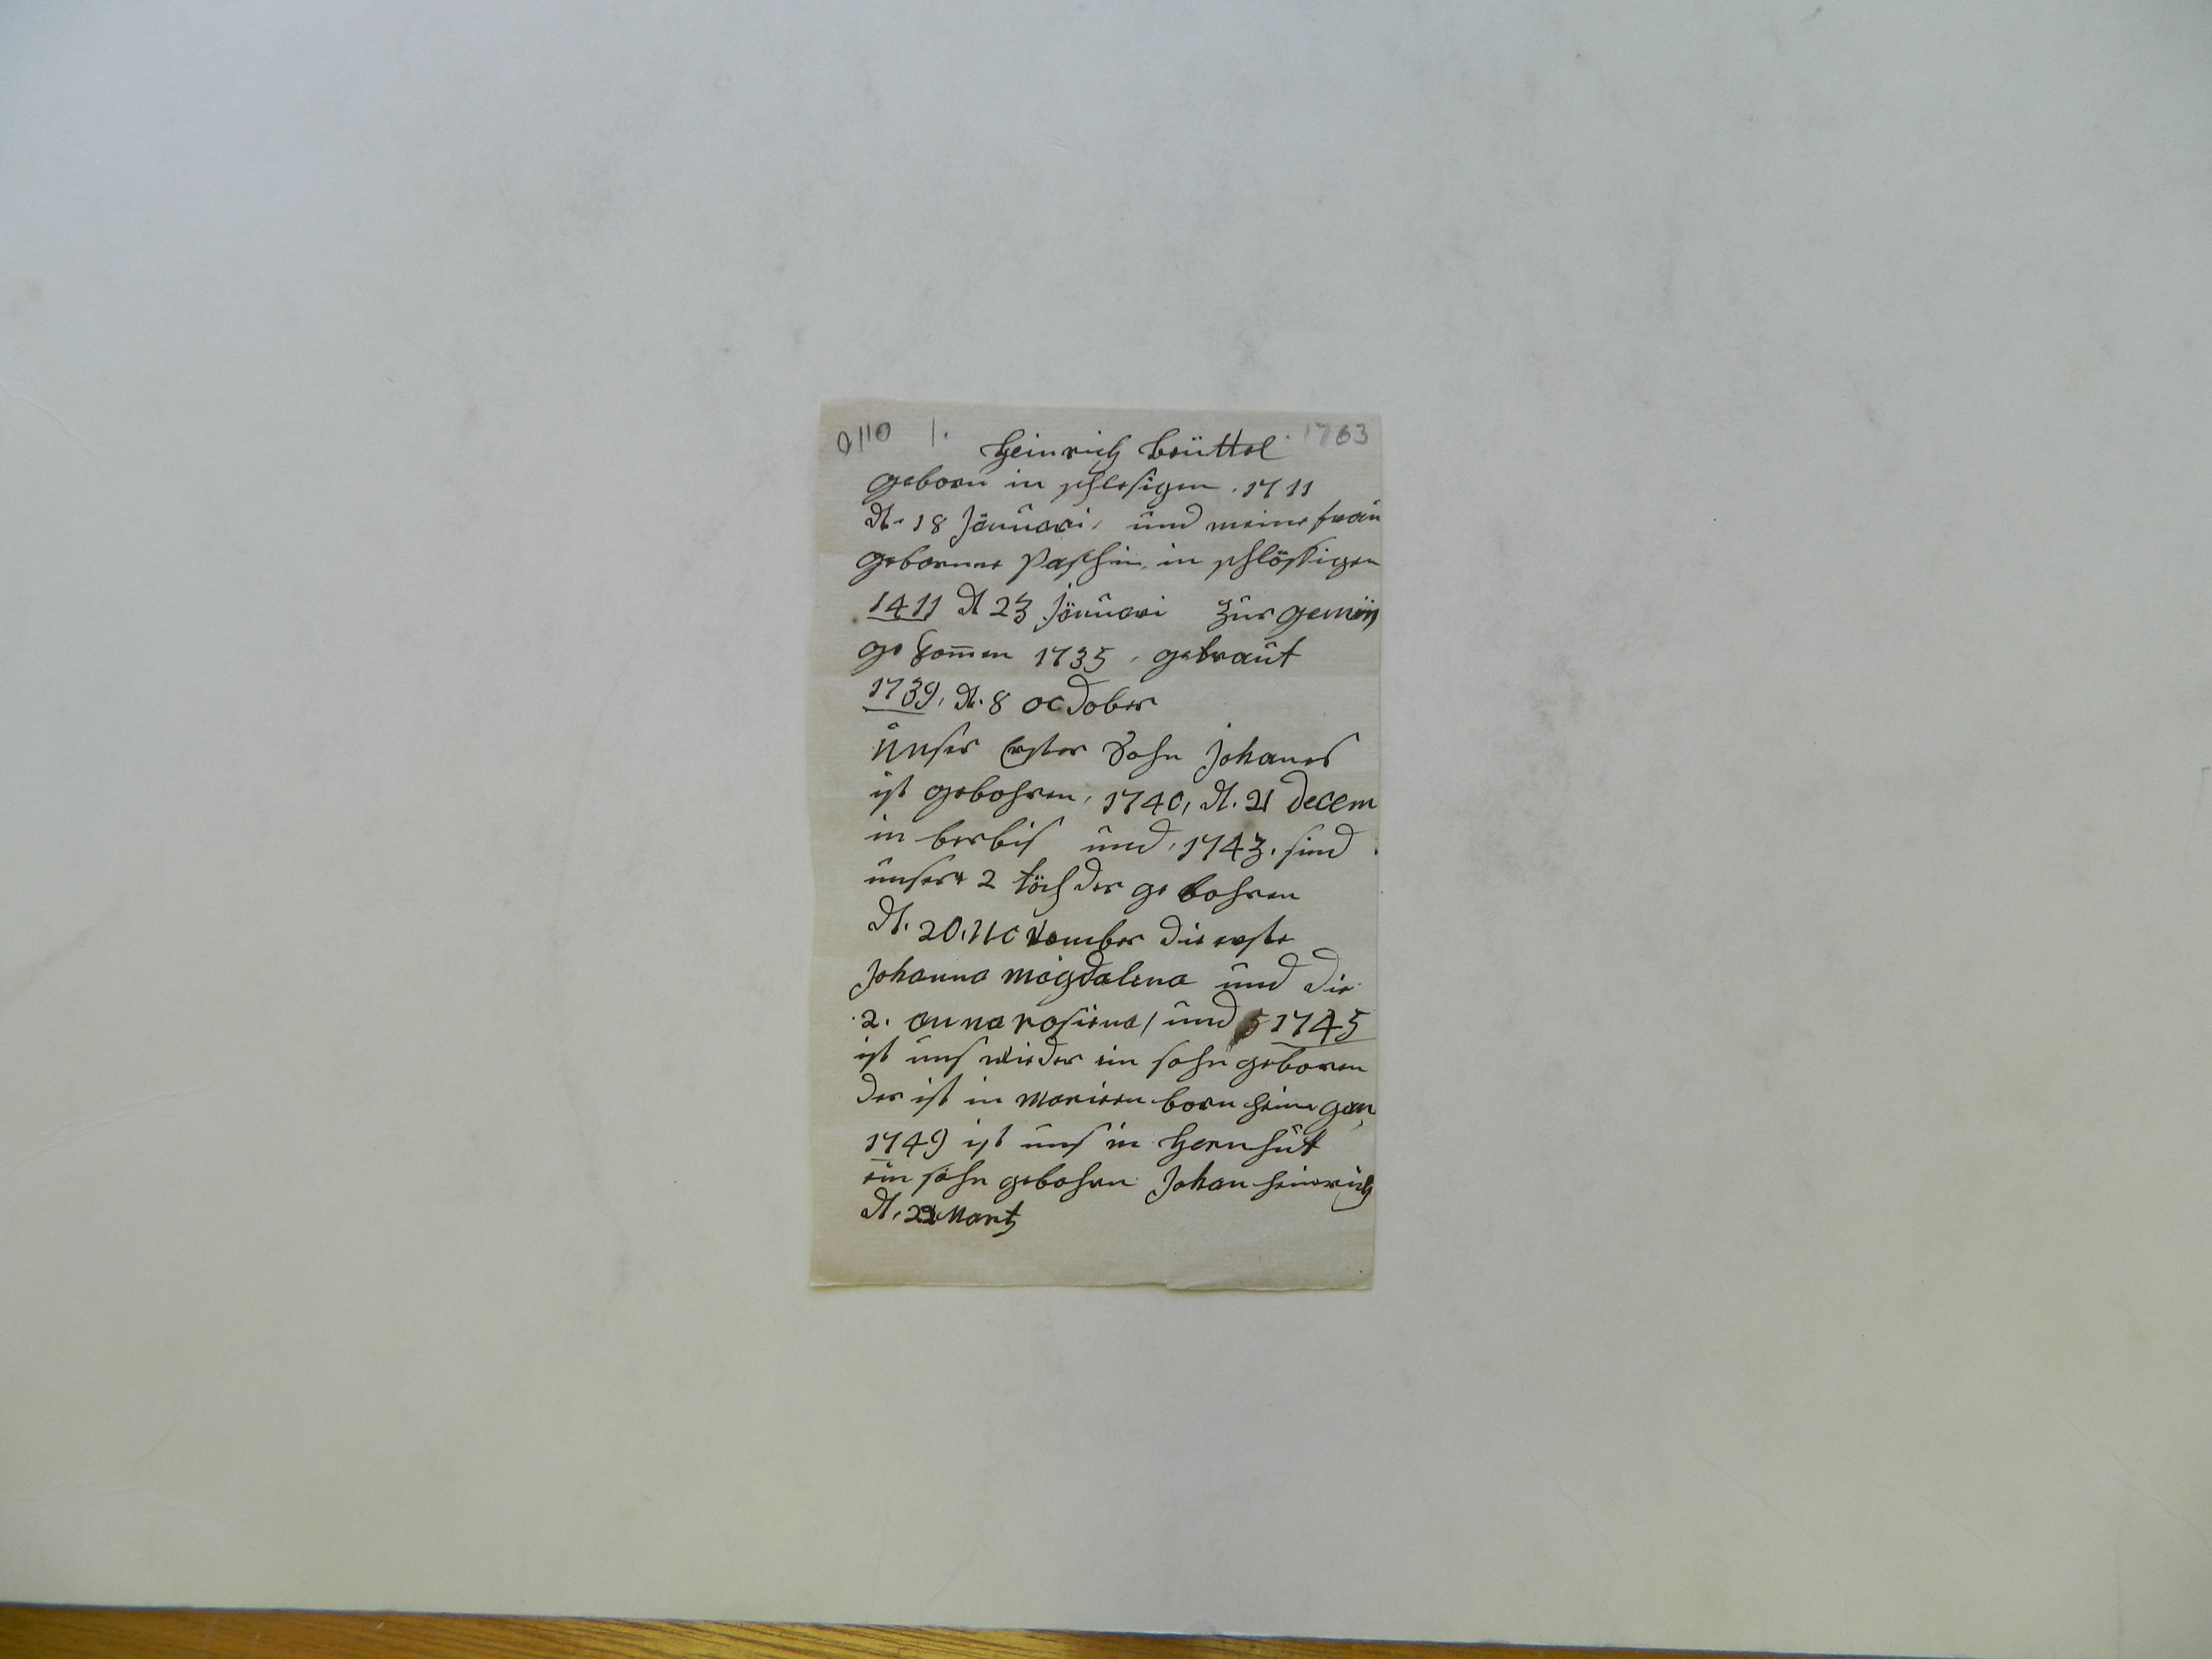 0110 1. 1763
Heinrich beüttel
geborn in schlesigen. 1711
d. 18 Janüari, ünd meine fraü
geborne Paschin, in schlössigen
1411 d 23 Janüari zür gemein
ge komen 1735, getraüt
1739, d. 8 ocdober
ünser Erster Sohn Johanes
ist gebohren, 1740, d. 21 decem
in berbis ünd, 1743, sind
ünsere 2 töchder ge bohren
d. 20, November die erste
Johanna magdalena ünd die
2. anna rosiena, ünd 1745
ist üns wieder ein sohn geboren
der ist in marien born heim gan
1749 ist üns in Hernhüt
ein sohn gebohrn Johan heinrich
d. 22 Martz